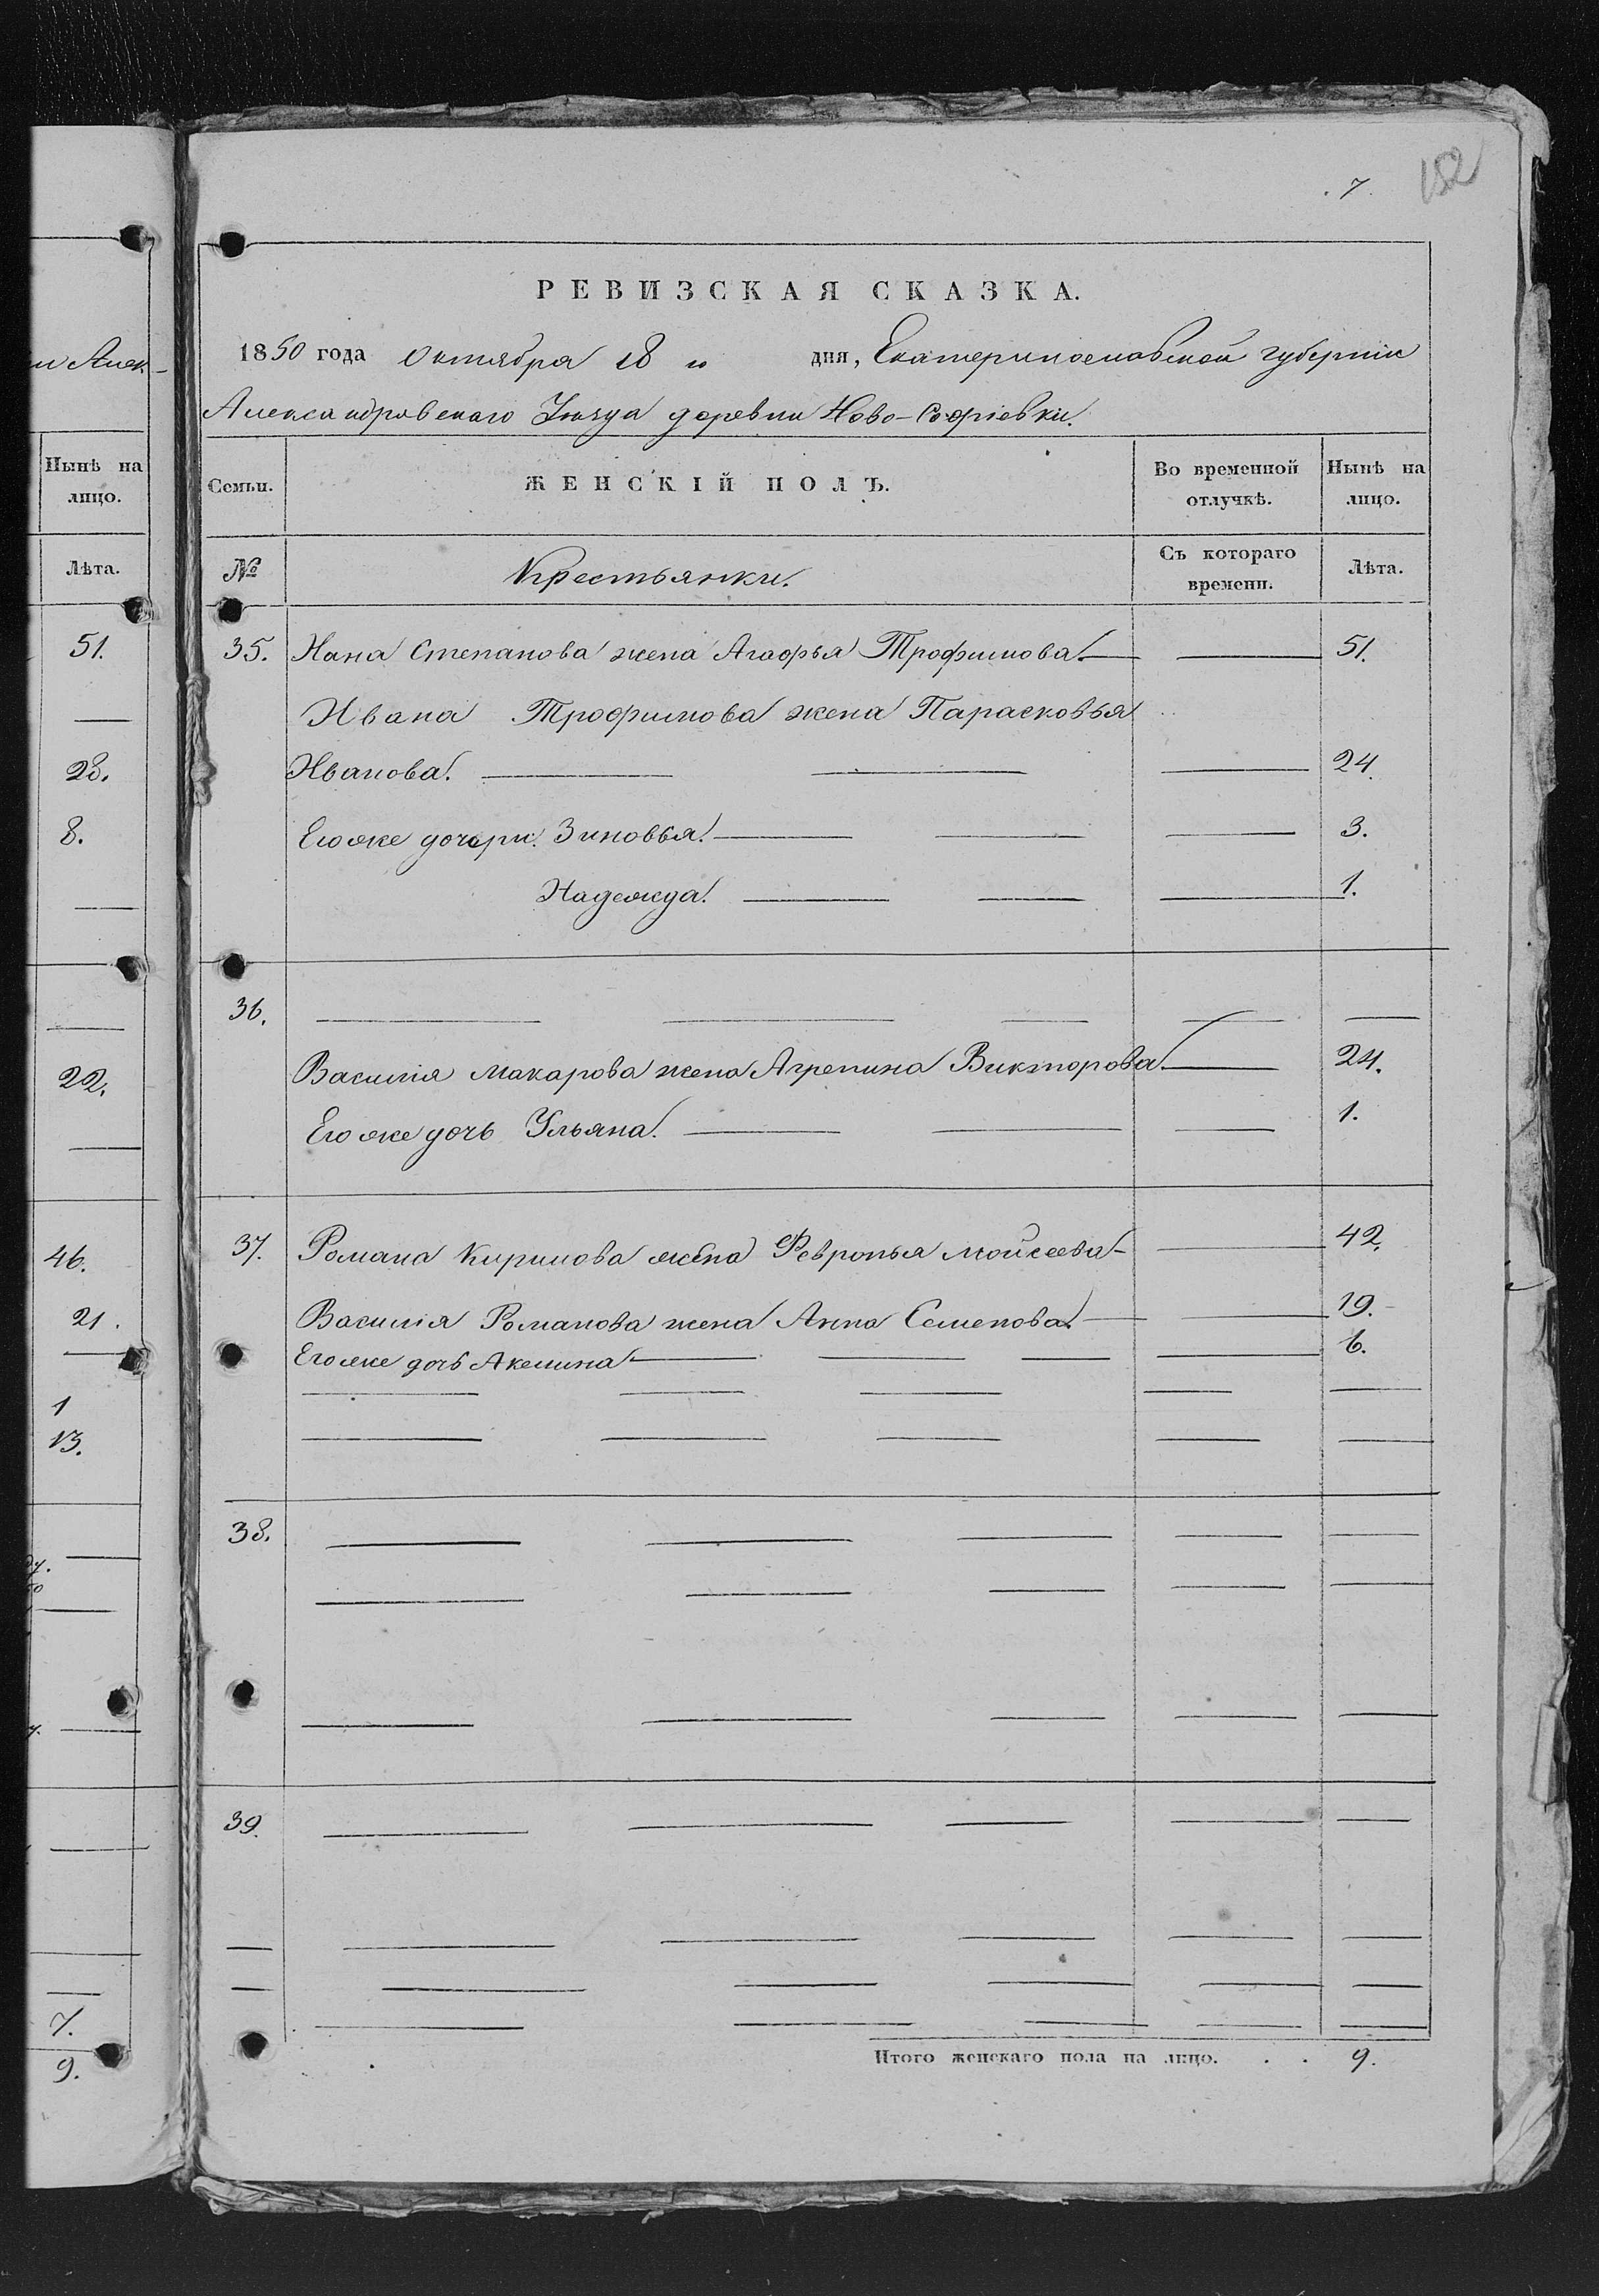 и Алек-
Нынѣ на
лицо.
Лѣта.
51.
28.
8.
22.
46.
21.
1
13.
7.
9.
7.
152
РЕВИЗСКАЯ СКАЗКА.
1850 года Октября 18 го дня, Екатеринославской губернии
Александровскаго Уѣзда деревни Ново-Софіевки.
Семьи. ЖЕНСКІЙ ПОЛЪ. Во временной отлучкѣ. Нынѣ на лицо.
№ Крестьянки. Съ котораго времени. Лѣта.
35. Степанова жена Агафья Трофимова. 51.
Ивана Трофимова жена Парасковья
Иванова. 24.
Его же дочери. Зиновья. 3.
Надежда. 1.
36.
Василія Макарова жена Агрепина Викторова. 24.
Его же дочь Ульяна. 1.
37. Романа Кирилова жена Февронья Мойсеева 42.
Василія Романова жена Анна Семенова. 19.
Его же дочь Акелина 6.
38.
39.
Итого женскаго пола на лицо. . . 9.